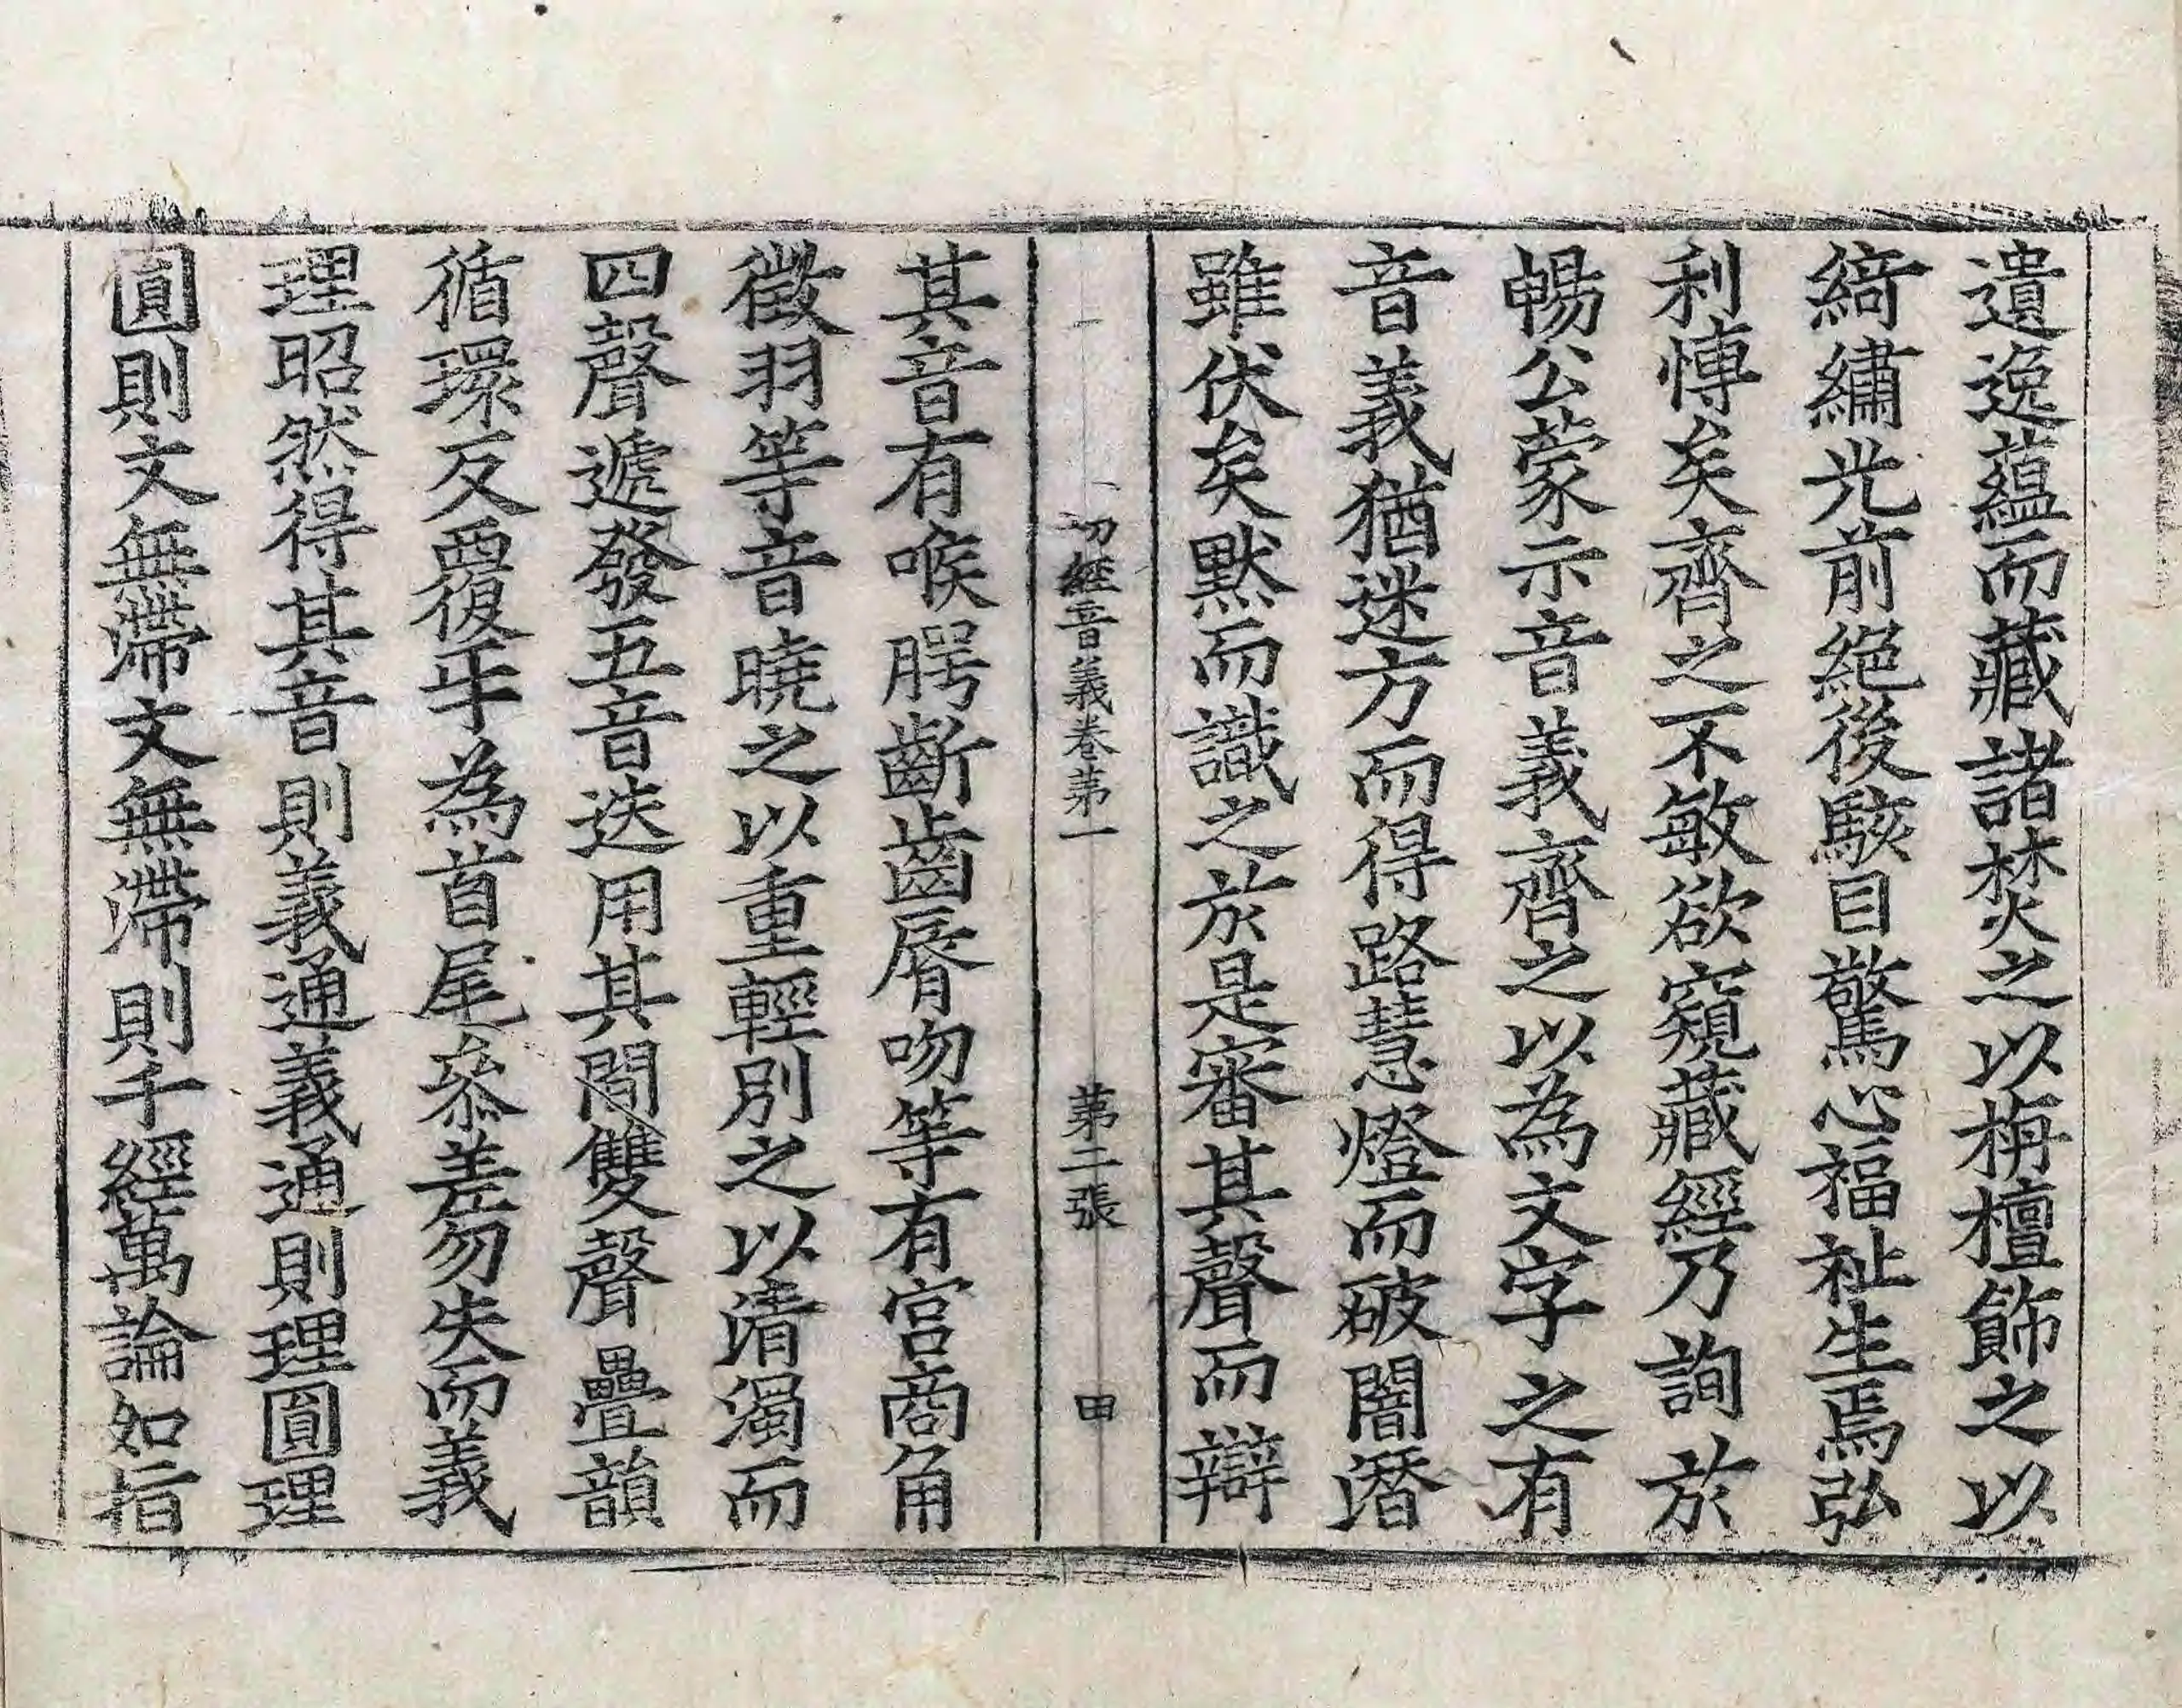 遺逸蘊而藏諸焚之以栴檀飾之以
綺繡光前絕後駭目驚心福祉生焉弘
利慱矣齊之不敏欲窺藏經乃詢於
暢公蒙示音義齊之以為文字之有
音義猶迷方而得路慧燈而破闇潛
雖伏矣默而識之於是審其聲而辯
一切經音義卷第一 第二張 田
其音有喉腭齗齒脣吻等有宮商角
徵羽等音曉之以重輕別之以清濁而
四聲遞發五音迭用其間雙聲疊韻
循環反覆𤘩為首尾叅差勿失而義
理昭然得其音則義通義通則理圓理
圓則文無滯文無滯則千經萬論如指